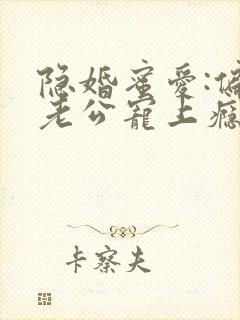 隐婚蜜爱:偏
老公宠上瘾
卡察夫